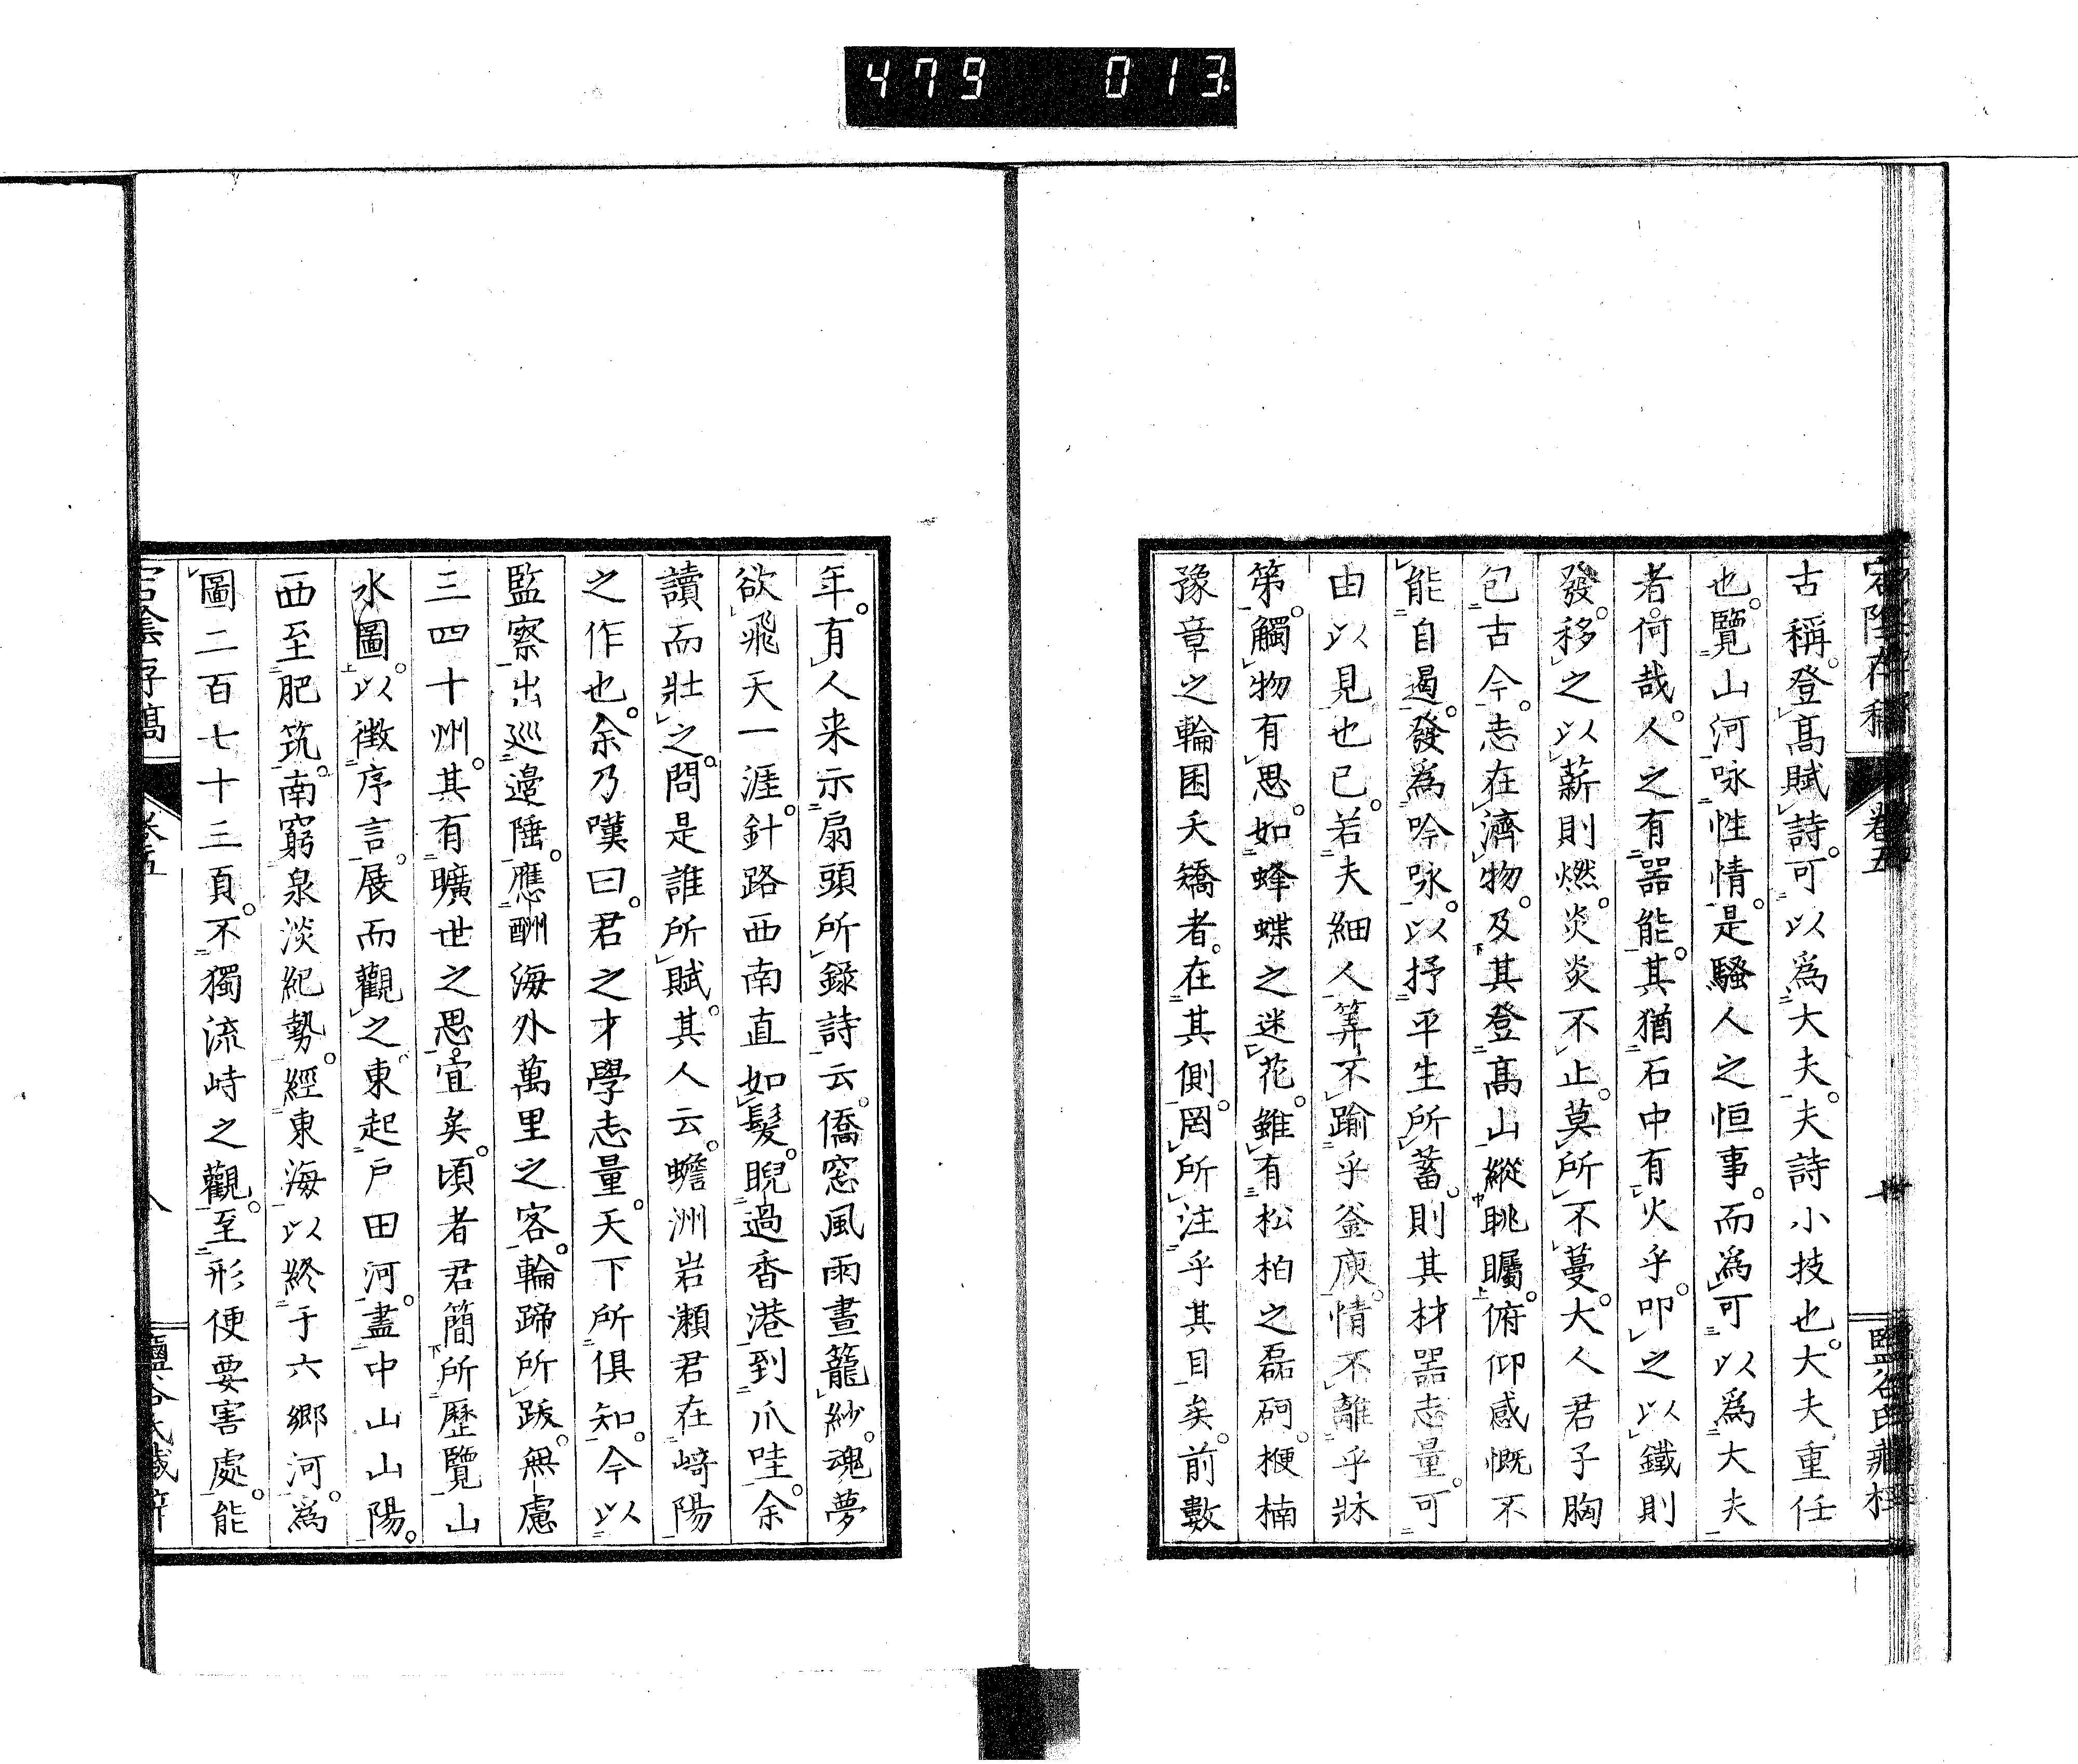 479 013
宕陰存稿 卷五 十 鹽谷氏藏梓
古稱。登高賦詩。可以爲大夫。夫詩小技也。大夫重任
也。覽山河。咏性情。是騷人之恒事。而爲可以爲大夫
者。何哉。人之有器能。其猶石中有火乎。叩之以鐵則
發。移之以薪則燃。炎炎不止。莫所不蔓。大人君子胸
包古今。志在濟物。及其登高山縱眺矚。俯仰感慨不
能自遏。發爲吟咏。以抒平生所蓄。則其材器志量。可
由以見也已。若夫細人筭不踰乎釜庾。情不離乎牀
笫。觸物有思。如蜂蝶之迷花。雖有松柏之磊砢。楩楠
豫章之輪囷夭矯者。在其側。罔所注乎其目矣。前數
年。有人来示扇頭所錄詩云。僑窓風雨晝籠紗。魂夢
欲飛天一涯。針路西南直如髮。睨過香港到爪哇。余
讀而壯之。問是誰所賦。其人云。蟾洲岩瀨君在﨑陽
之作也。余乃嘆曰。君之才學志量。天下所俱知。今以
監察出巡邉陲。應酬海外萬里之客。輪蹄所跋。無慮
三四十州。其有曠世之思。宜矣。頃者君簡所歷覽山
水圖。以徵序言。展而觀之。東起戸田河。盡中山山陽。
西至肥筑。南窮泉淡紀勢。經東海以終于六郷河。為
圖二百七十三頁。不獨流峙之觀。至形便要害處。能
宕陰存稿 卷五 八 鹽谷氏藏梓